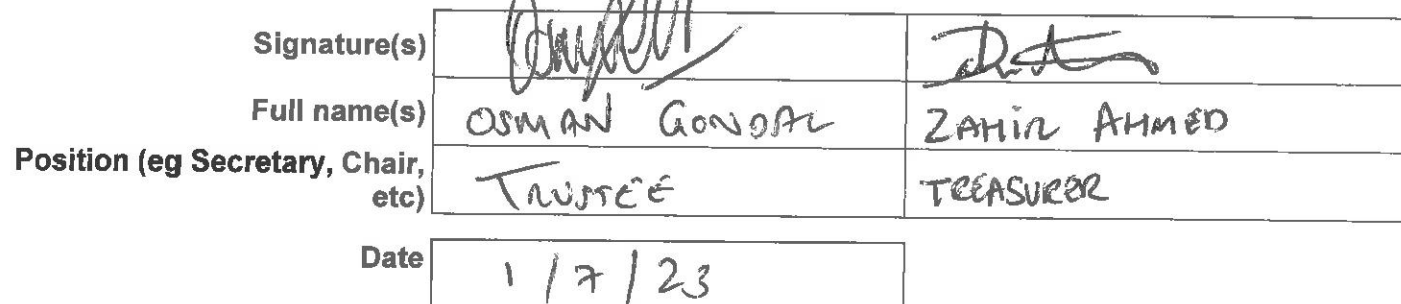 Signature(s)
Full name(s) OSMAN GONDAL ZAHIR AHMED
Position (eg Secretary, Chair, etc) TRUSTEE TREASURER
Date 1/7/23